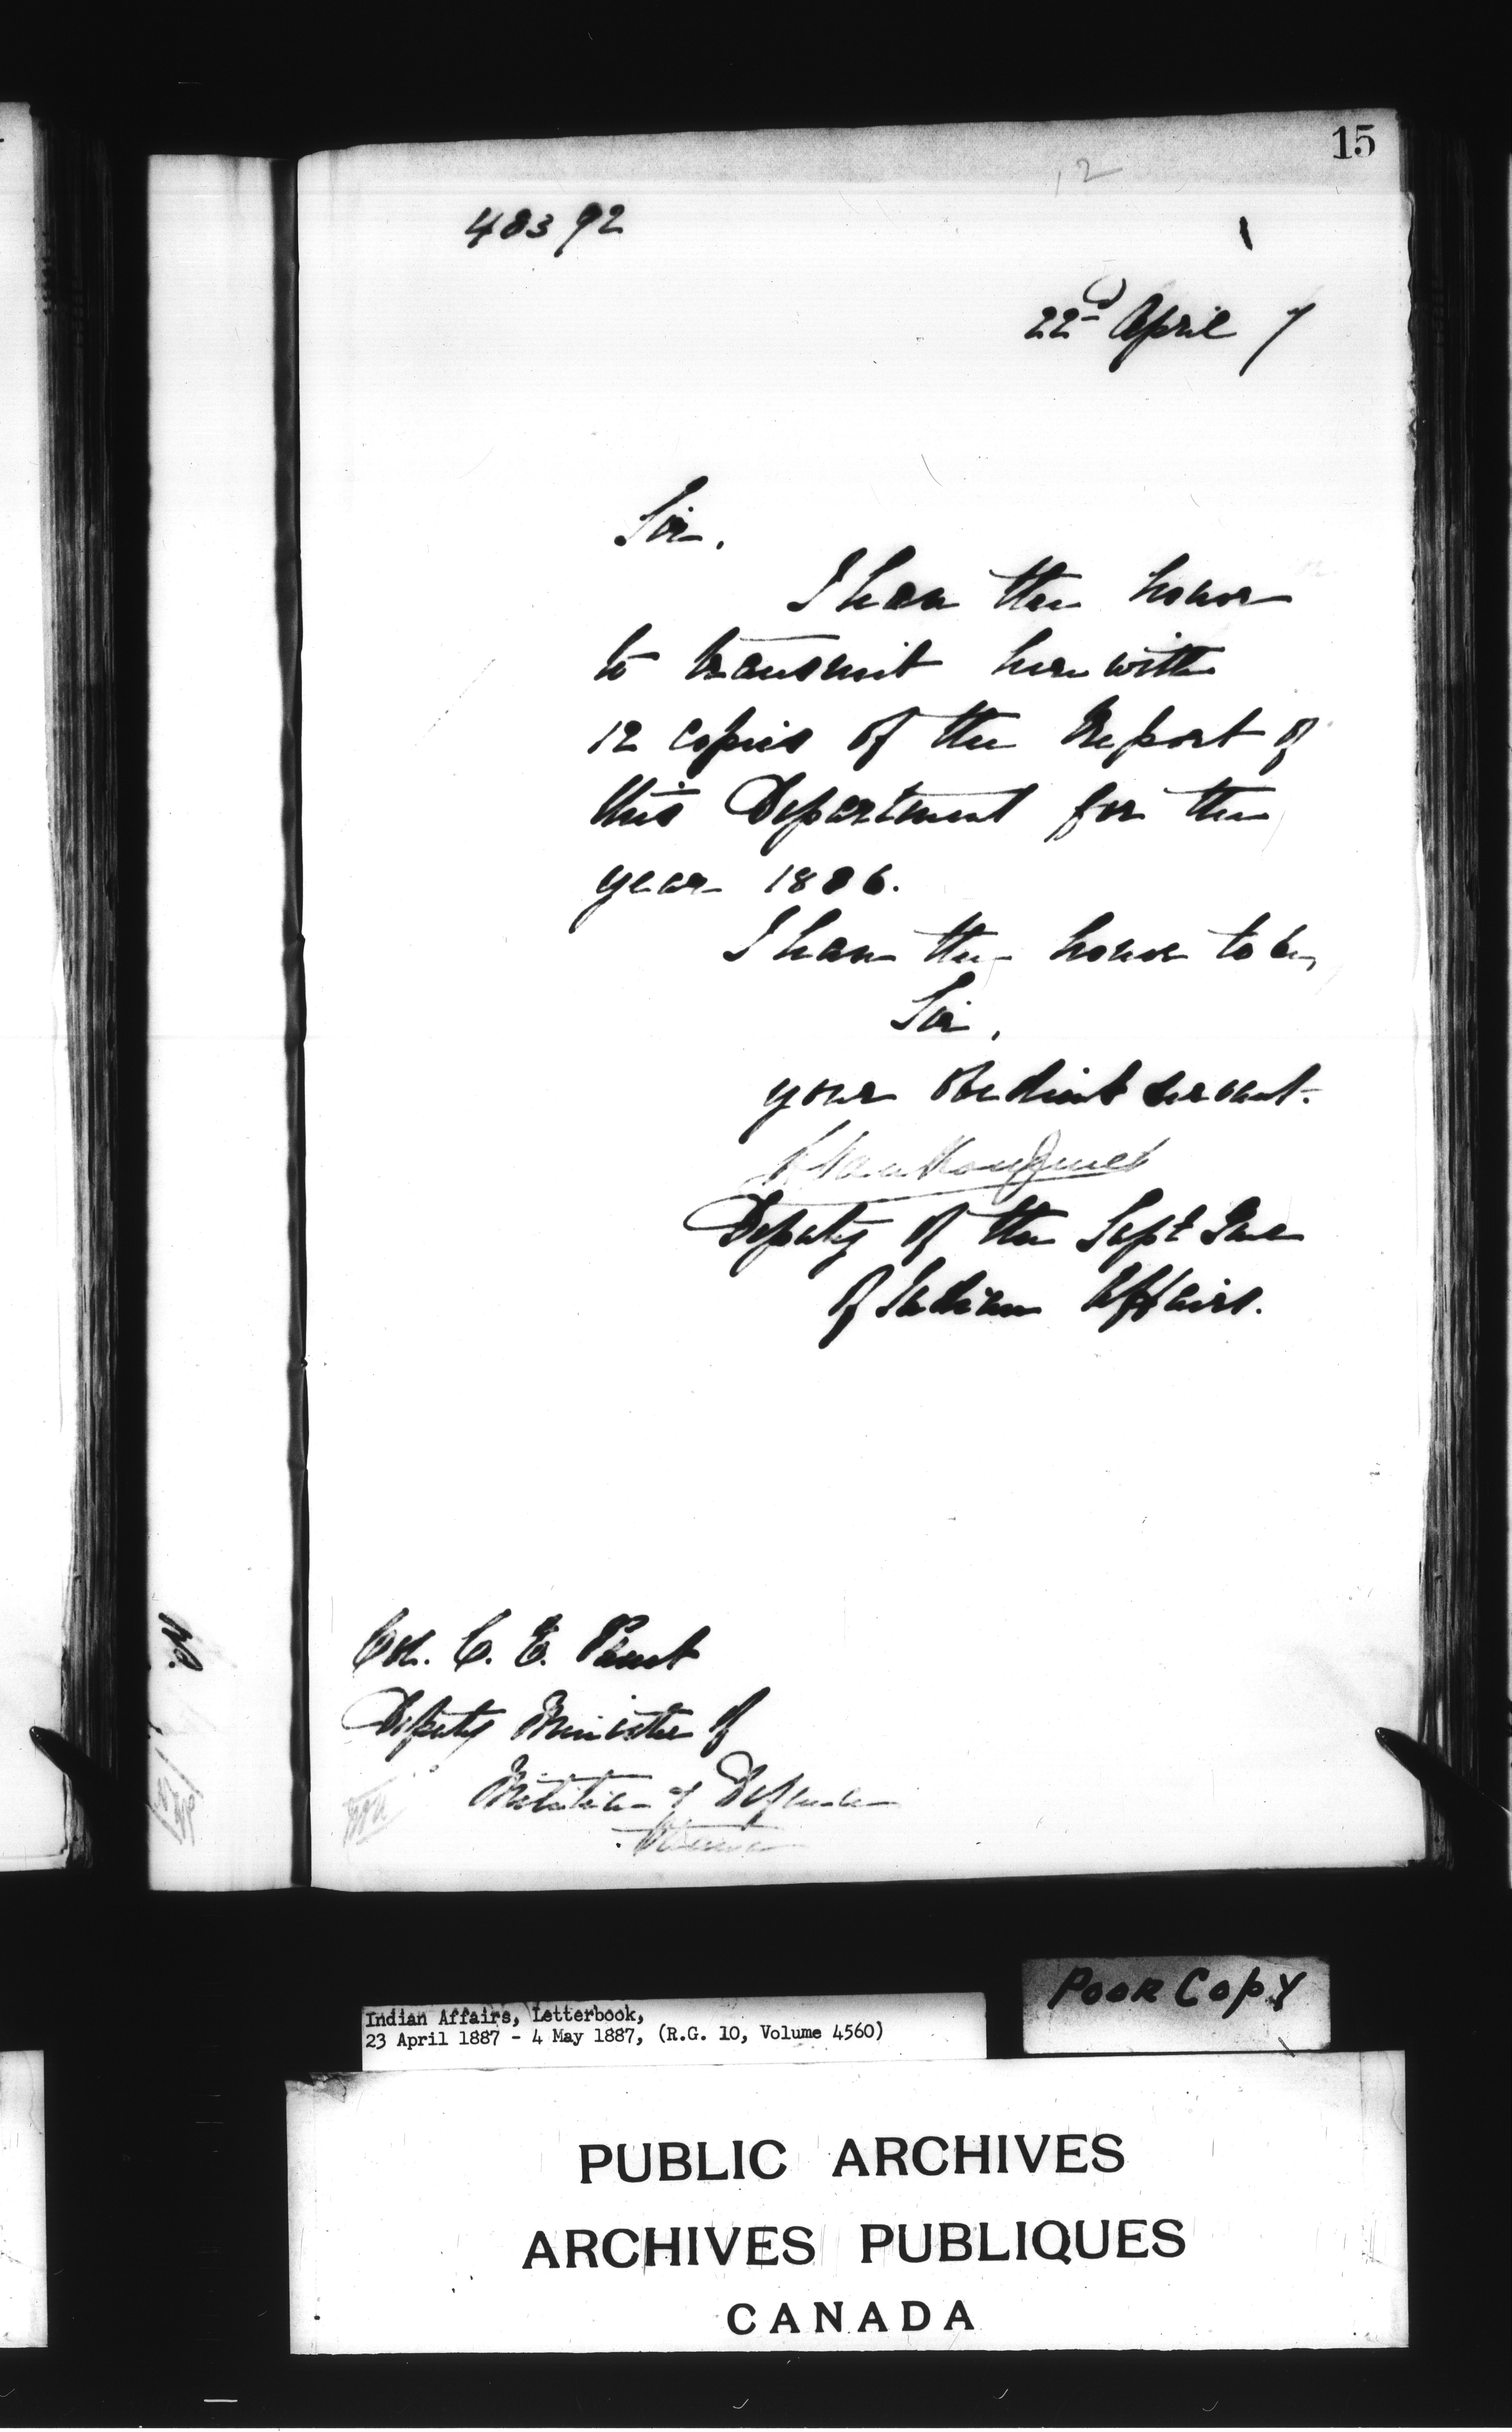 15
12
48392
22nd April 7
Sir,
I have the honor
to transmit herewith
12 copies of the Report of
this Department for the
year 1886.
I have the honor to be,
Sir,
your obedient servant.
L. VanKoughnet
Deputy of the Supt Gen
of Indian Affairs.
Col. C. E. Panet
Deputy Minister of
Militia & Defence
Ottawa
Indian Affairs, Letterbook,
23 April 1887 - 4 May 1887, (R.G. 10, Volume 4560)
POOR COPY
PUBLIC ARCHIVES
ARCHIVES PUBLIQUES
CANADA